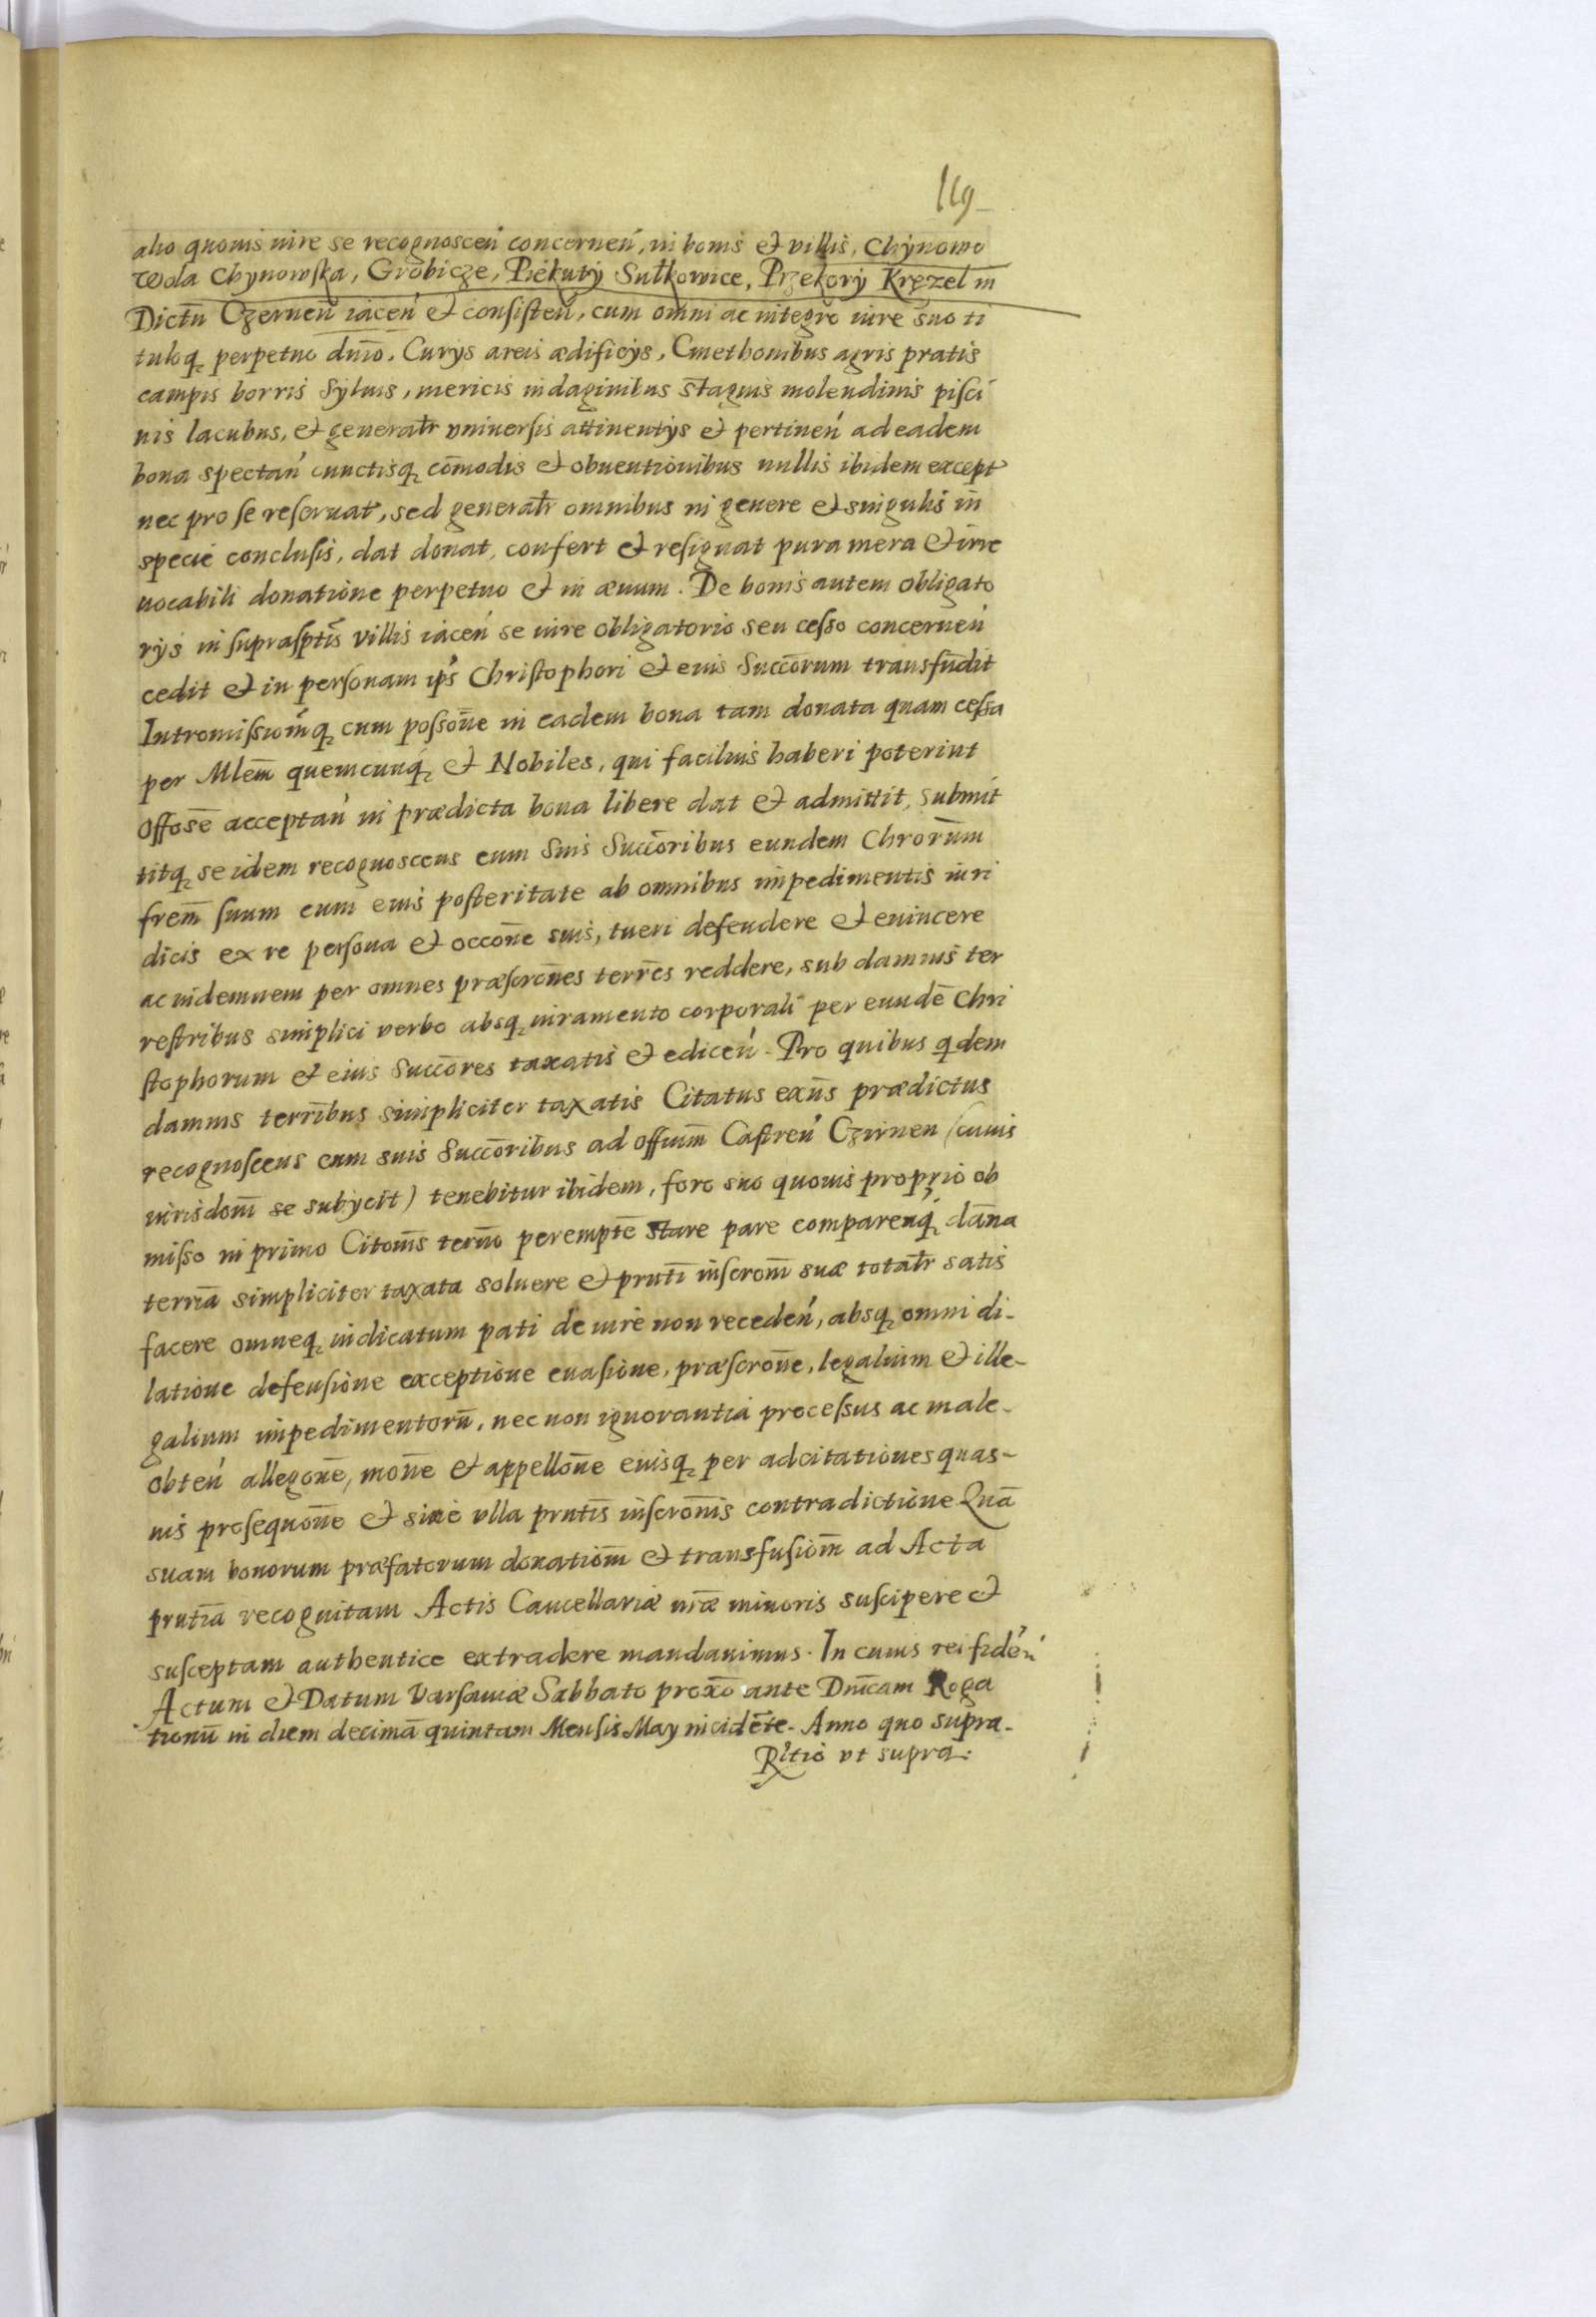 119
alio quouis iure se recognoscen̄ concernen̄, in bonis et villis, Chynowo
Wola Chynowska, Grobicze, Piekuty Sułkowice, Przekory Kręzel in
Dictū Czernen̄ iacen̄ et consisten̄, cum omni ac integro iure suo ti
tuloq₃ perpetuo dnīo. Curys areis ædificys, Cmethonibus agris pratis
campis borris Syluis, mericis indaginibus stagnis molendinis pisci
nis lacubus, et generatr̄ vniuersis attinentys et pertinen̄ ad eadem
bona spectan̄ cunctisq₃ cōmodis et obuentionibus nullis ibidem except
nec pro se reseruat, sed generatr̄ omnibus in genere et singulis in
specie conclusis, dat donat, confert et resignat pura mera et irre
uocabili donatione perpetuo et in æuum. De bonis autem obligato
rys in suprasptīs villis iacen̄ se iure obligatorio seu cesso concernen̄
cedit et in personam ips̄ Christophori et eius Succōrum transfūdit
Intromissiom̄q₃ cum possōne in eadem bona tam donata quam cessa
per Mlem̄ quemcunq₃ et Nobiles, qui facilius haberi poterint
Offōse acceptan̄ in prædicta bona libere dat et admittit, submit
titq₃ se idem recognoscens cum suis Succōribus eundem Chrorūm
frem̄ suum cum eius posteritate ab omnibus impedimentis iuri
dicis ex re persona et occōne suis, tueri defendere et euincere
ac indemnem per omnes præscrōnes terr̄es reddere, sub damnis ter
restribus simplici verbo absq₃ iuramento corporali per eundē Chri
stophorum et eius Succōres taxatis et edicen̄. Pro quibus qdem
damnis terrībus simpliciter taxatis Citatus exn̄s prædictus
recognoscens cum suis Succōribus ad offium̄ Castren̄ Czirnen (cuius
iurisdom̄ se subycit) tenebitur ibidem, foro suo quouis proprio ob
misso in primo Citom̄s termō peremptē stare pare comparenq₃ dāna
terriā simpliciter taxata soluere et prntī inscrom̄ suæ totatr̄ satis
facere omneq₃ iudicatum pati de iure non receden̄, absq₃ omni di-
latione defensione exceptione euasione, præscrōne, legalium et ille-
galium impedimentorū, nec non ignorantia processus ac male-
obten̄ allegōne, mōne et appellōne eiusq₃ per adcitationes quas-
uis prosequōne et sine vlla prntīs inscrōnis contradictione Quā
suam bonorum præfatorum donatiom̄ et transfusiom̄ ad Acta
prntiā recognitam Actis Cancellariæ nr̄æ minoris suscipere et
susceptam authentice extradere mandauimus. In cuius rei fiden̄
Actum et Datum Varsauiæ Sabbato proxō ante Dnīcam Roga
tionū in diem decimā quintam Mensis May incidēte. Anno quo supra.
Rltio vt supra.